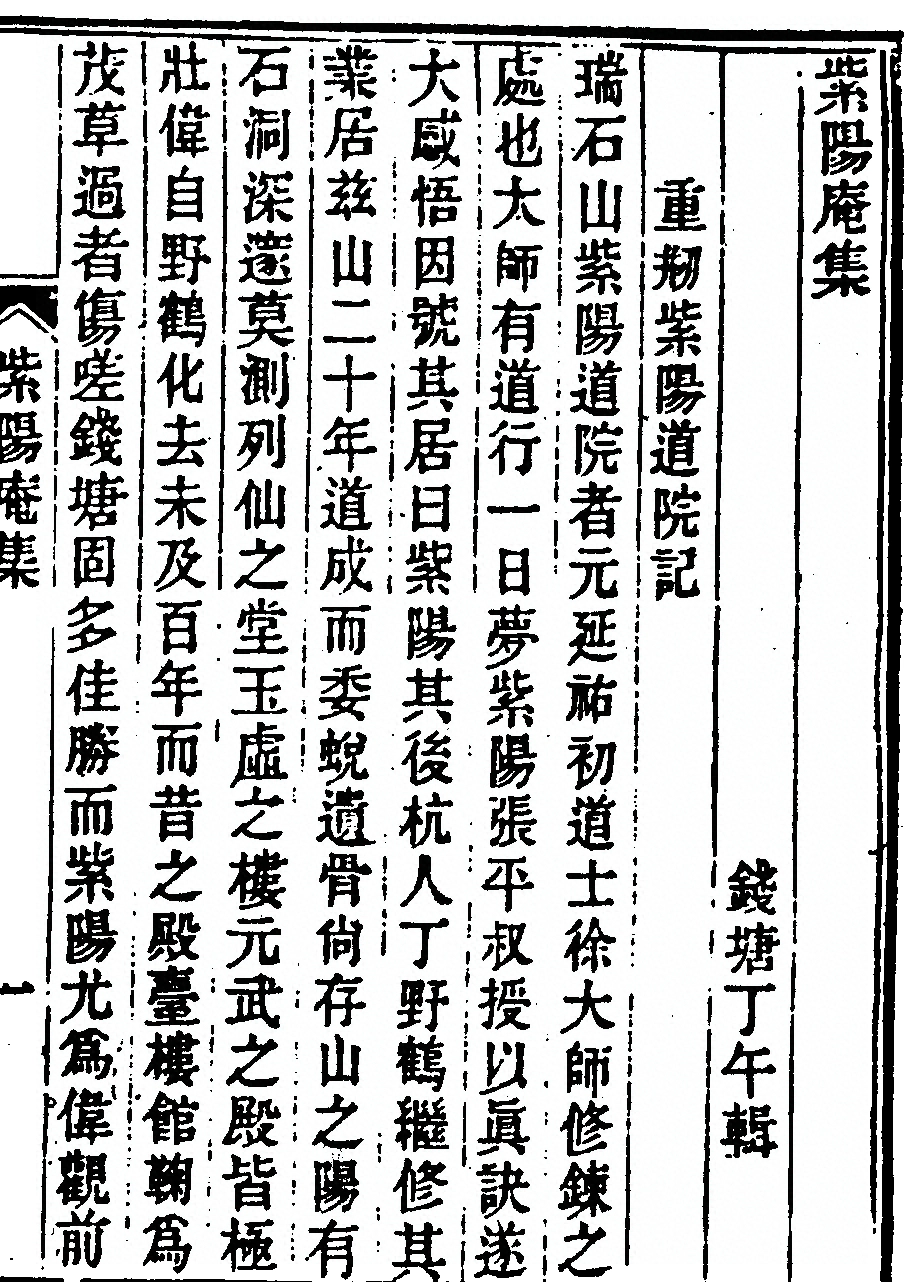 紫陽庵集
錢塘丁午輯
重剏紫陽道院記
瑞石山紫陽道院者元延祐初道士徐大師修鍊之
處也大師有道行一日夢紫陽張平叔授以眞訣遂
大感悟因號其居曰紫陽其後杭人丁野鶴繼修其
業居茲山二十年道成而委蛻遺骨尙存山之陽有
石洞深邃莫測列仙之堂玉虛之樓元武之殿皆極
壯偉自野鶴化去未及百年而昔之殿臺樓館鞠爲
茂草過者傷嗟錢塘固多佳勝而紫陽尤爲偉觀前
紫陽庵集
一